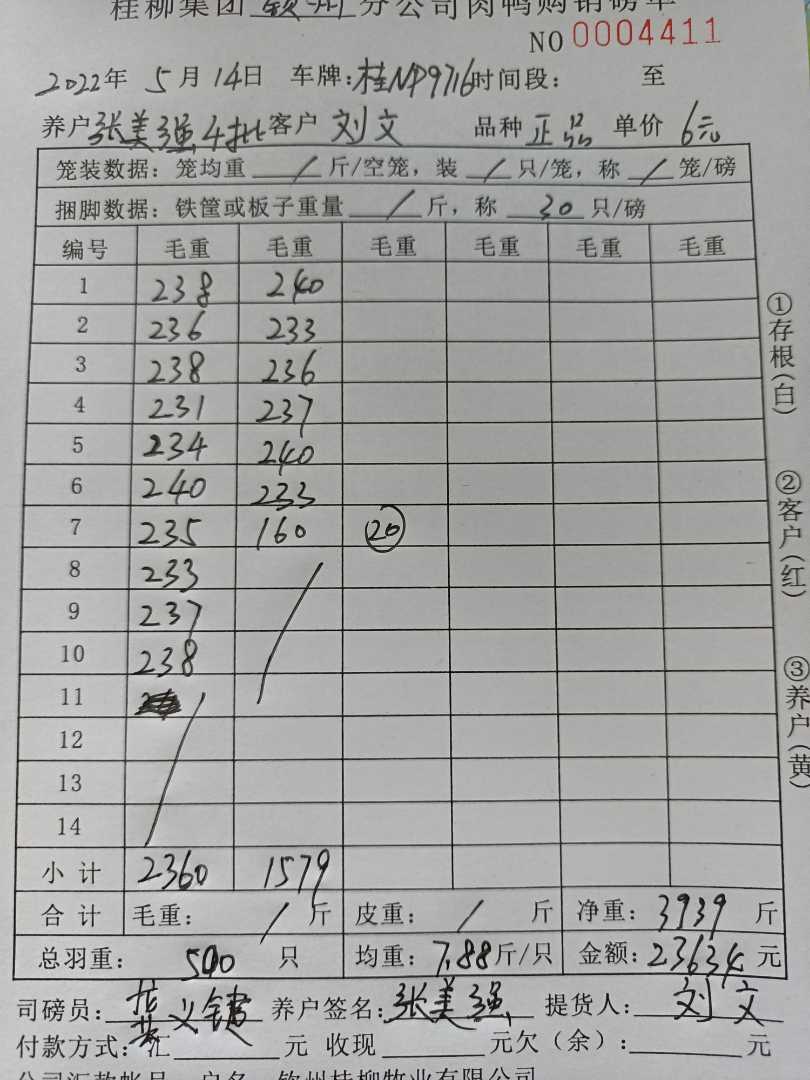 桂柳集团 钦州 分公司肉鸭购销磅单
NO 0004411
2022年 5月14日 车牌:桂NP9716 时间段: 至
养户 张美强4批 客户 刘文 品种 正品 单价 6元
笼装数据: 笼均重 / 斤/空笼, 装 / 只/笼, 称 / 笼/磅
捆脚数据: 铁筐或板子重量 / 斤, 称 30 只/磅
编号 毛重 毛重 毛重 毛重 毛重 毛重
1 238 240
2 236 233
3 238 236
4 231 237
5 234 240
6 240 233
7 235 160 20
8 233
9 237
10 238
11
12
13
14
小计 2360 1579
合计 毛重: / 斤 皮重: / 斤 净重: 3939 斤
总羽重: 500 只 均重: 7.88斤/只 金额: 23634 元
司磅员: 养户签名: 张美强 提货人: 刘文
付款方式: 汇 元 收现 元欠(余):
公司汇款帐号 户名 钦州桂柳牧业有限公司
①存根(白)
②客户(红)
③养户(黄)